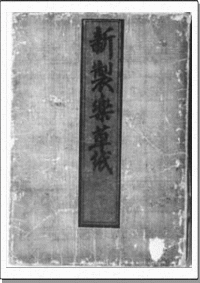 新製樂草紙